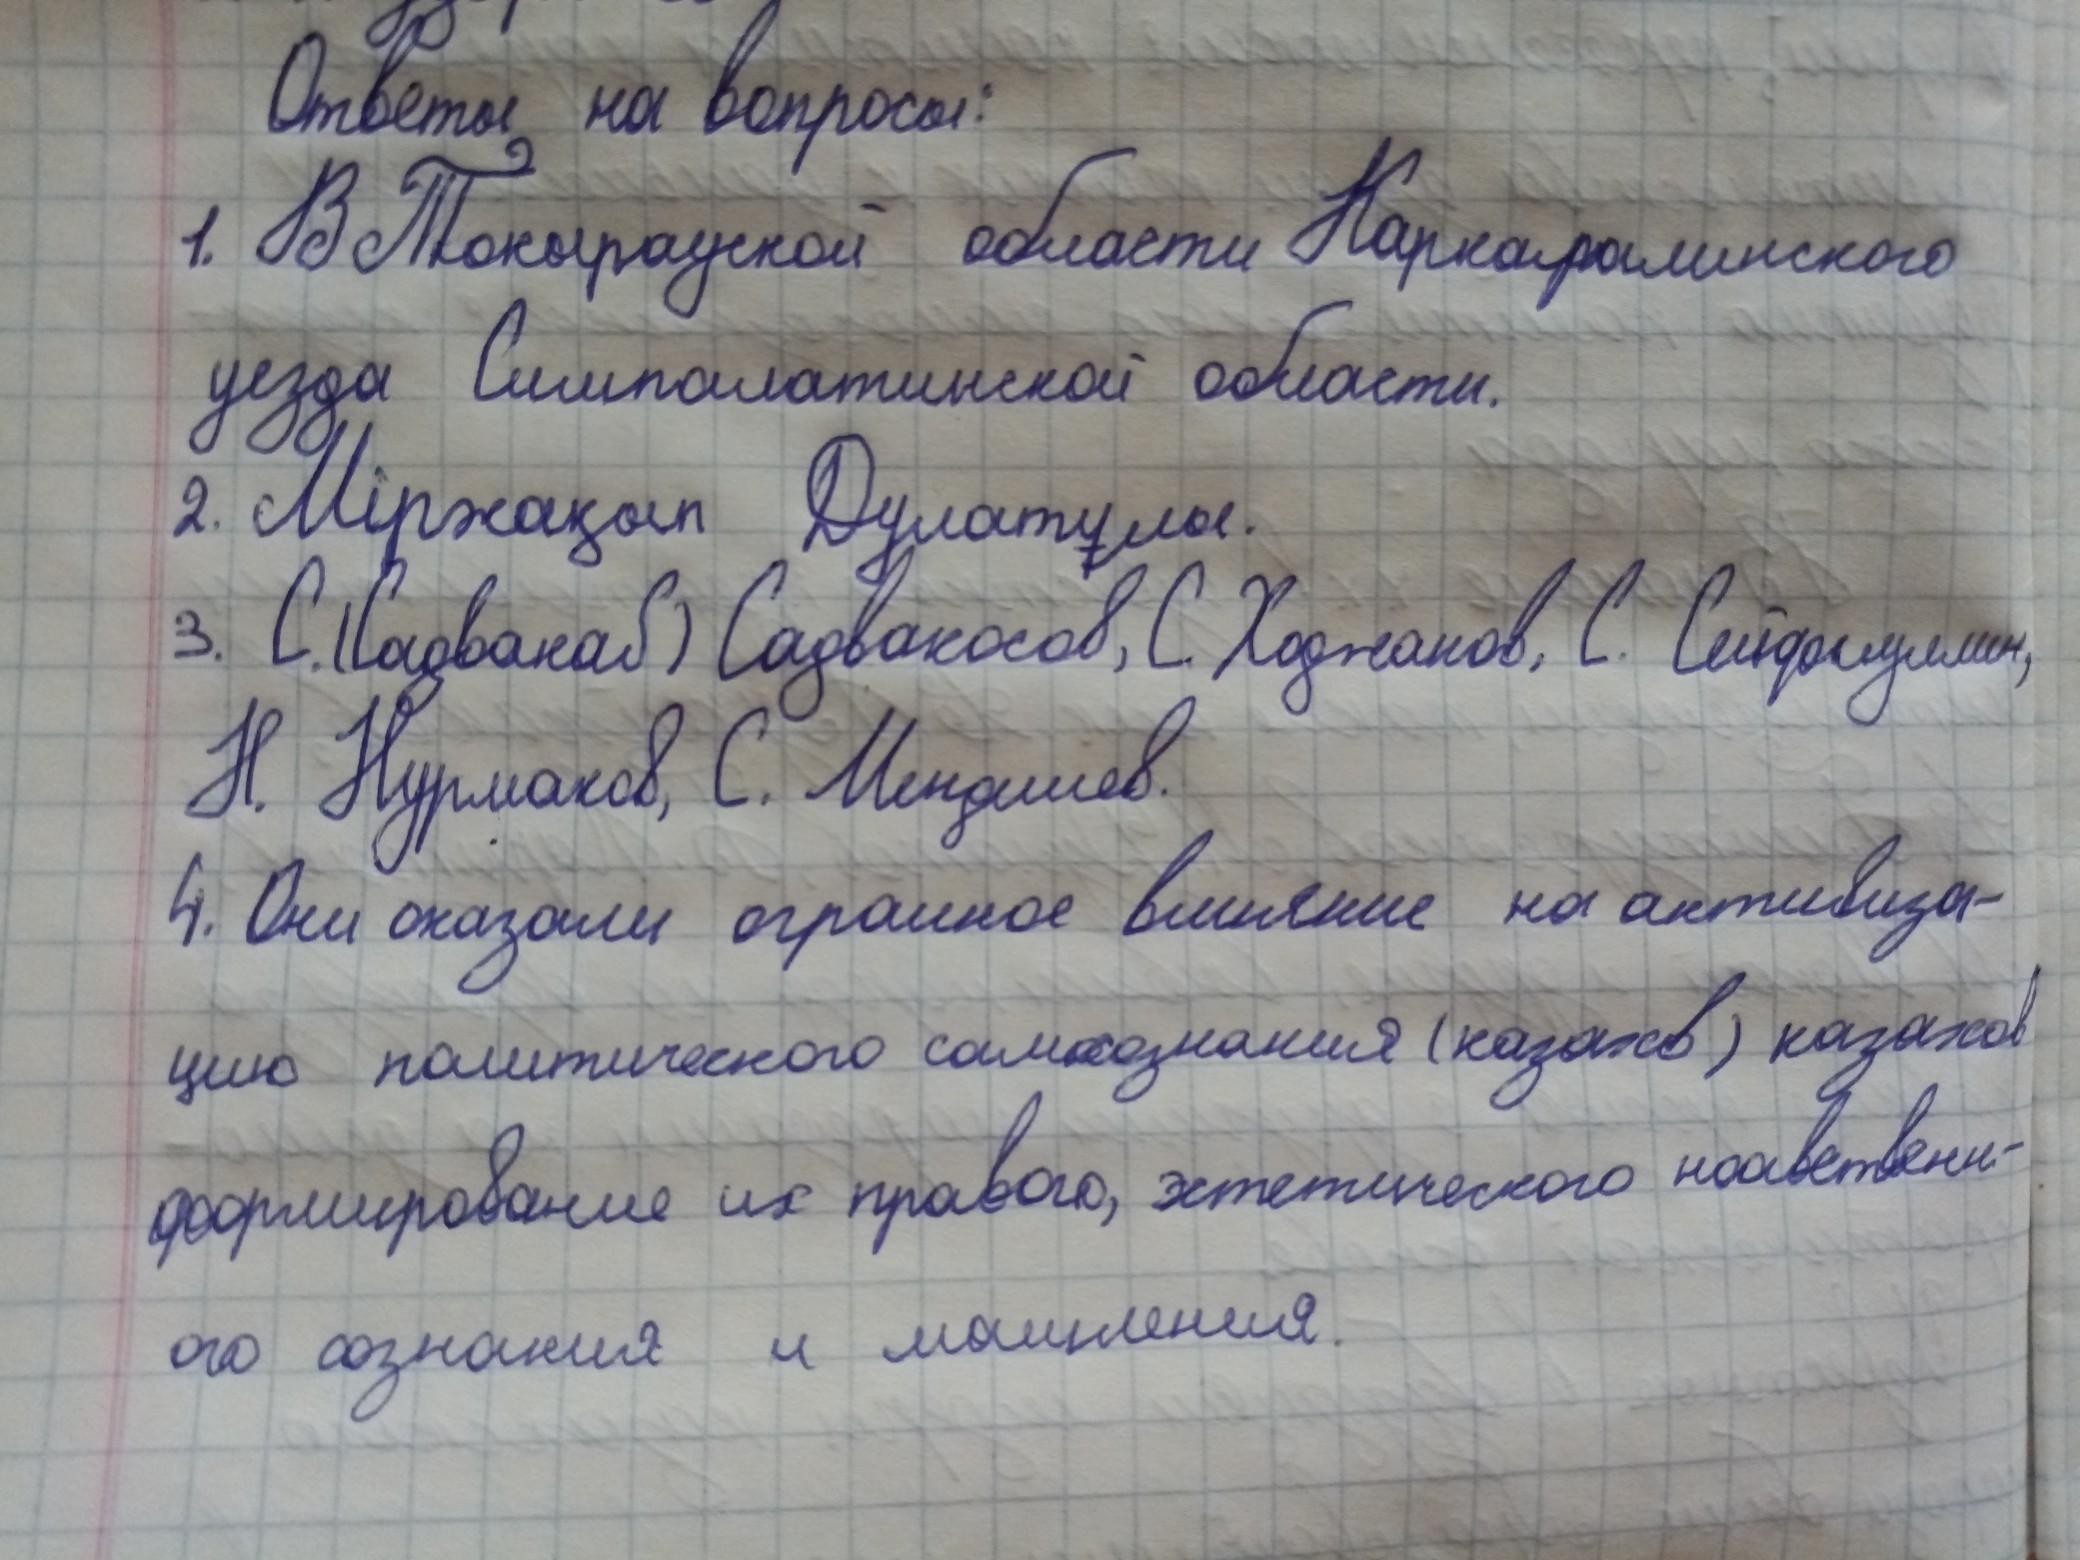 Ответы на вопросы:
1. В Токырауской области Каркаралинского
уезда Симпалатинской области.
2. Міржақып Дулатұлы.
3. С. (Садвакаб) Садвакосов, С. Ходжанов, С. Сейфуллин,
Н. Нурмаков, С. Мендешев.
4. Они оказали огромное влияние на активиза-
цию политического самосознания (казахв) казахов
формирование их правого, эстетического нравственн-
ого сознания и мышления.